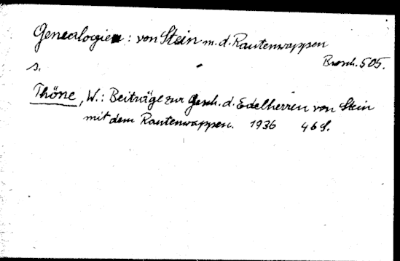 Genealogien: von Stein m. d. Rautenwappen
Brosch. 505.
s.
Thöne, W.: Beiträge zur Gesch. d. Edelherren von Stein
mit dem Rautenwappen. 1936 46 S.